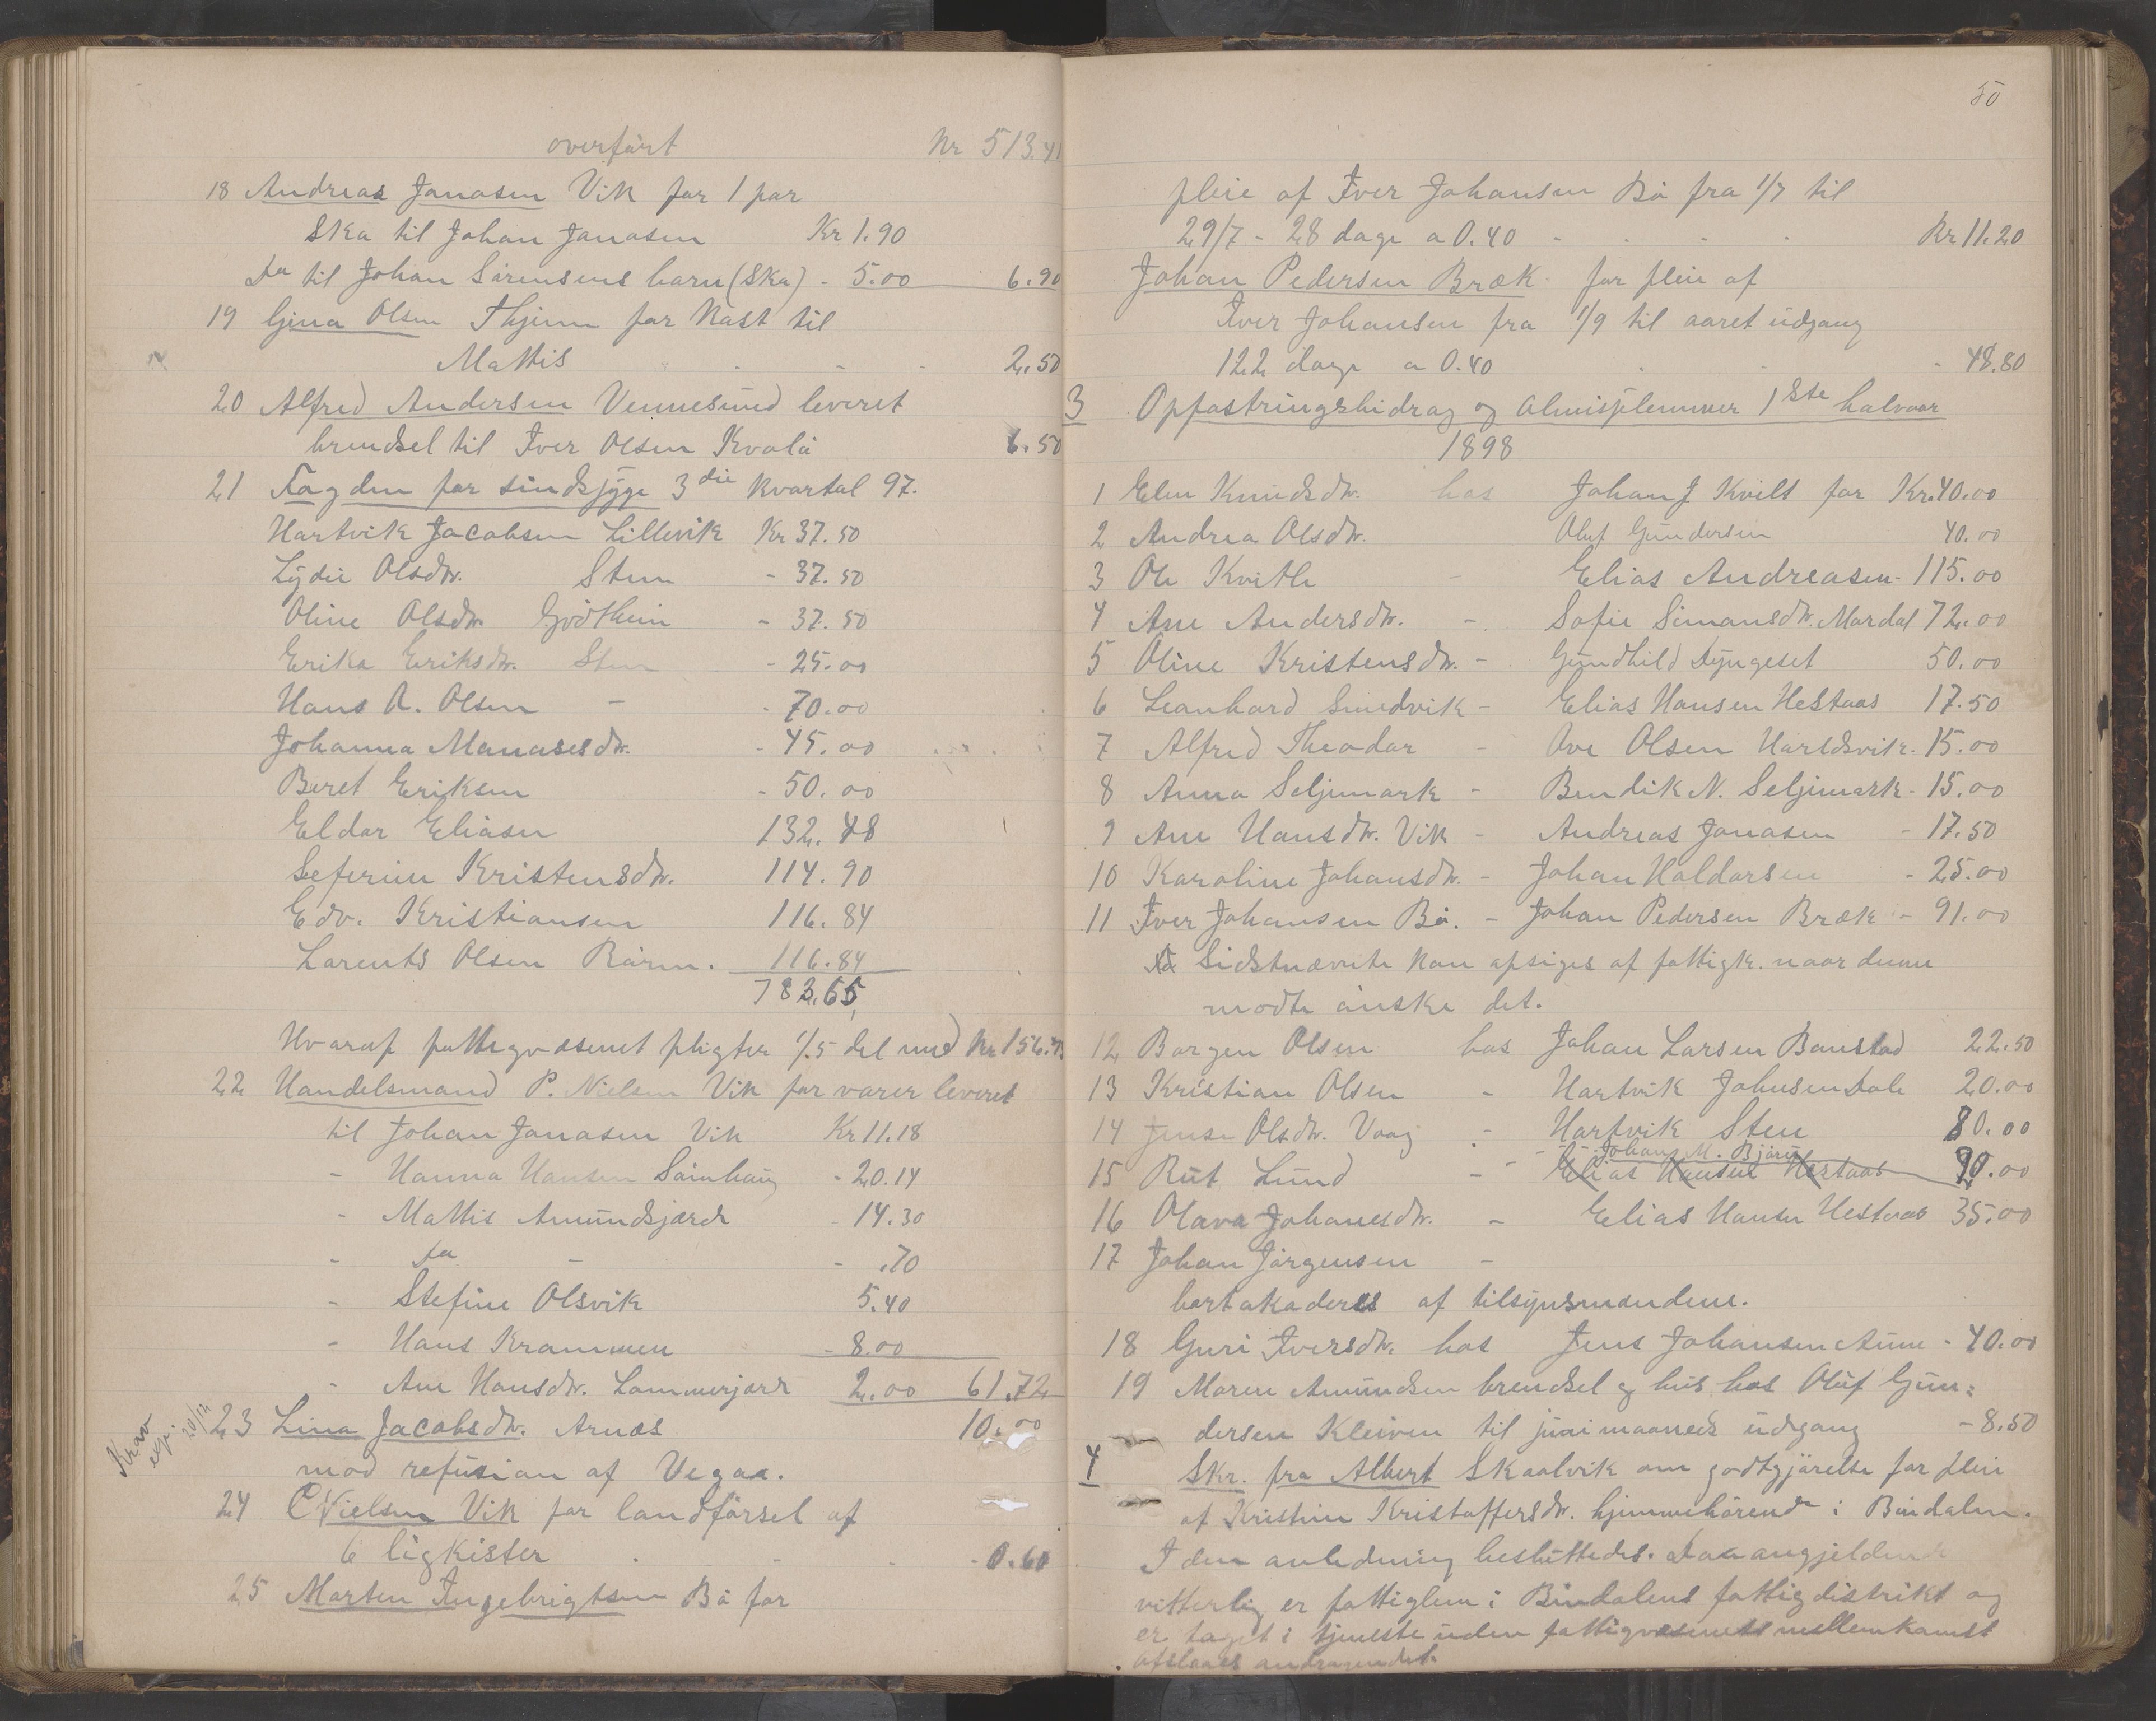 overført Kr 513.41
18 Andreas Jonasen Vik for 1 par
Sko til Johan Jonasen Kr 1.90
Do til Johan Sörensens barn (Sko) - 5.00 6.90
19 Gjina Olsen Thjem for Kost til
Mattis 2.50
20 Alfred Andersen Vennesund leveret
brendsel til Iver Olsen Kvalö 6.50
21 Fogden for sindssyge 3die Kvartal 97.
Hartvik Jacobsen Lillevik Kr 37.50
Lydie Olsdtr. Sten - 37.50
Oline Olsdtr. Godtheim - 37.50
Erika Eriksdtr. Sten - 25.00
Hans A. Olsen - - 70.00
Johanna Manasesdtr. - 45.00
Beret Eriksen - 50.00
Eldor Eliasen 132.48
Seferine Kristensdtr. 114.90
Edv. Kristiansen 116.84
Larents Olsen Rörm. 116.84
783.65
Hvoraf fattigvæsenet pligter 1/5 del med Kr 156.73
22 Handelsmand P. Nielsen Vik for varer leveret
til Johan Jonasen Vik Kr 11.18
- Hanna Hansen Sömhaug - 20.14
- Mattis Amundsjorde - 14.30
- Do - - .70
- Stefine Olsvik 5.40
- Hans Krammen - 8.00
- Ane Hansdtr. Lammerjord 2.00 61.72
Krav exp. 20/12
23 Lina Jacobsdtr. Arnæs 10.00
mod refusion af Vegaa.
24 C Nielsen Vik for landförsel af
6 ligkister - 0.60
25 Morten Ingebrigtsen Bö for
50
pleie af Iver Johansen Bö fra 1/7 til
29/7 - 28 dage a 0.40 - Kr 11.20
Johan Pedersen Bræk for pleie af
Iver Johansen fra 1/9 til aaret udgang
122 dage a 0.40 - 48.80
3 Opfostringsbidrag og Almisselemmer 1ste halvaar
1898
1 Elen Knudsdtr. hos Johan J Kvilt for Kr. 40.00
2 Andrea Olsdtr. Oluf Gundersen 40.00
3 Ole Kvitle - Elias Andreasen - 115.00
4 Ane Andersdtr. - Sofie Simonsdtr. Mardal 72.00
5 Oline Kristensdtr. - Gundhild Dyngeset 50.00
6 Leonhard Sundvik - Elias Hansen Hestaas 17.50
7 Alfred Theodor - Ove Olsen Harldsvik - 15.00
8 Anna Seljemark - Bendik N. Seljemark - 15.00
9 Ane Hansdtr. Vik - Andreas Jonasen - 17.50
10 Karoline Johansdtr. - Johan Haldorsen - 25.00
11 Iver Johansen Bö. - Johan Pedersen Bræk - 91.00
Sidstnævnte kan opsiges af fattigk. naar denne
modte önske det.
12 Borgen Olsen hos Johan Larsen Bonstad 22.50
13 Kristian Olsen - Hartvik Johnsen Dale 20.00
14 Jense Olsdtr. Vaag - Hartvik Sten 80.00
- - Johan M. Björen
15 Rut Lund - Elias Hansen Hestaas 90.00
16 Olava Johanesdtr. - Elias Hansen Hestaas 35.00
17 Johan Jörgensen -
bortakoderes af tilsynsmandene.
18 Guri Iversdtr. hos Jens Johansen Aune - 40.00
19 Maren Amundsen brendsel og hus hos Oluf Gun-
dersen Kleiven til juni maaneds udgang - 8.50
4 Skr. fra Albert Skaalvik om godtgjörelse for pleie
af Kristine Kristoffersdtr. hjemmehörende i Bindalen.
I den anledning besluttedes. Da angjeldende
vitterlig er fattiglem i Bindalens fattigdistrikt og
er taget i tjeneste uden fattigvæsenets mellemkomst
afslaaes andragendet.